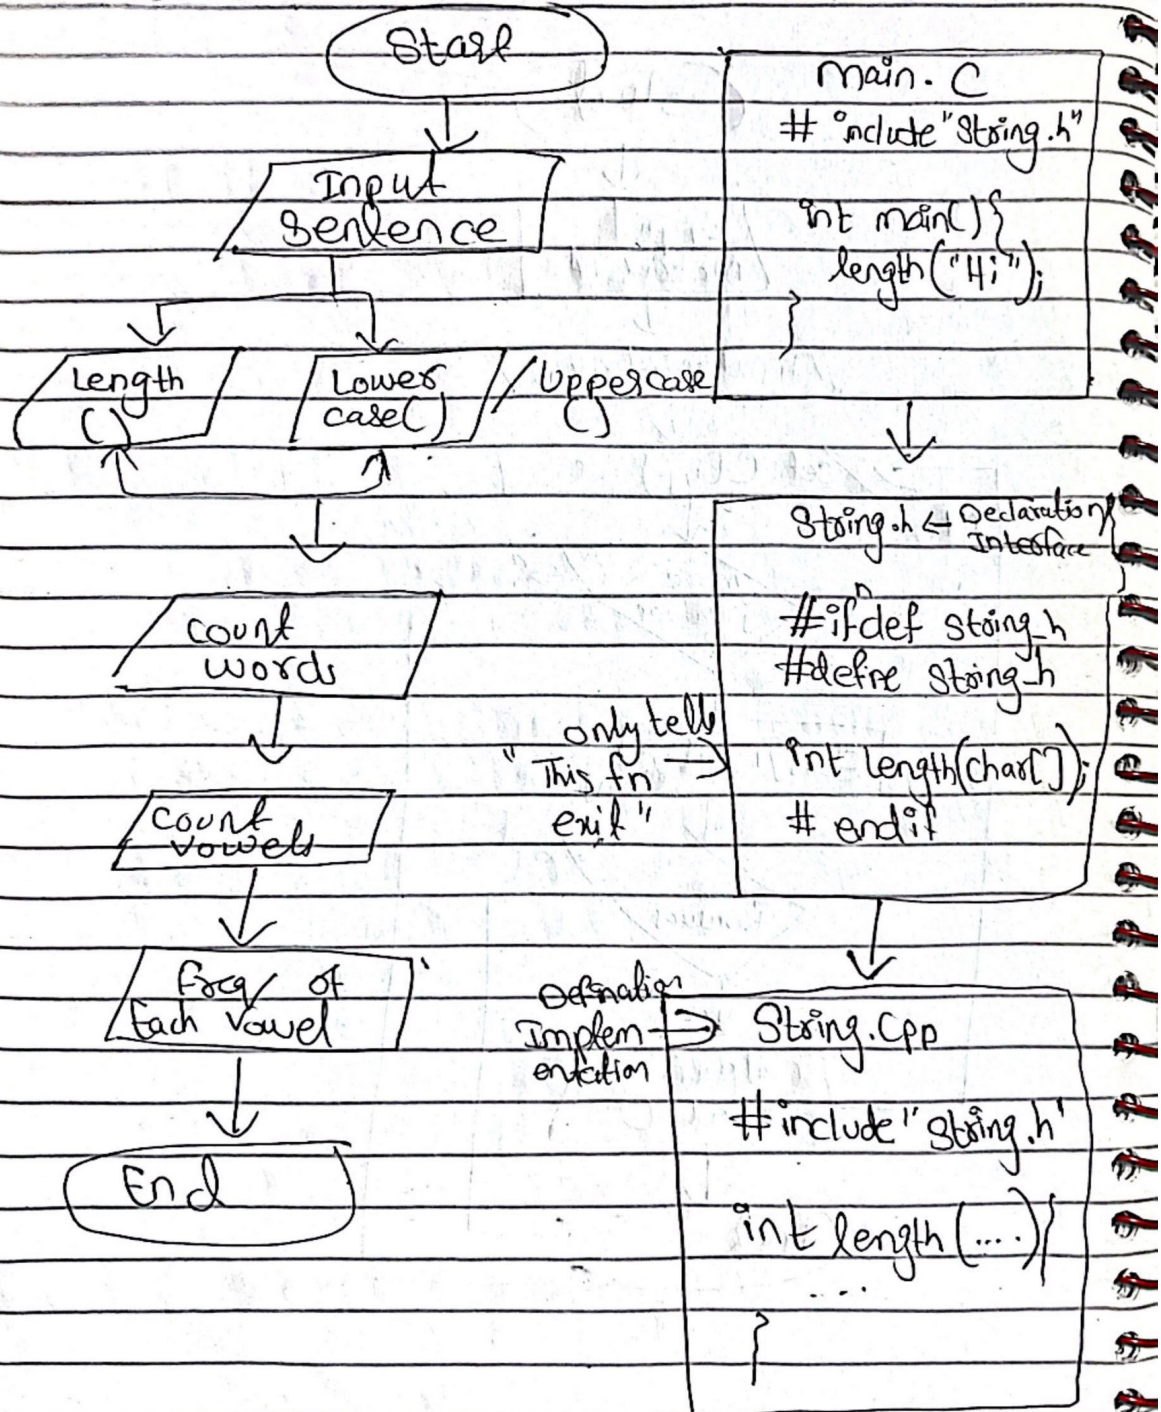 Start
Input
Sentence
Length
()
Lower
case()
/ Uppercase
()
count
words
count
vowels
freq of
Each Vowel
End
main. C
# include "String.h"
int main(){
length("Hi");
}
String.h ← Declaration/
Interface
#ifndef string_h
#define string_h
only tells
"This fn
exit"
int length(char[]);
# endif
Defination
Implem
entation
String.Cpp
#include "String.h"
int length(....){
...
}